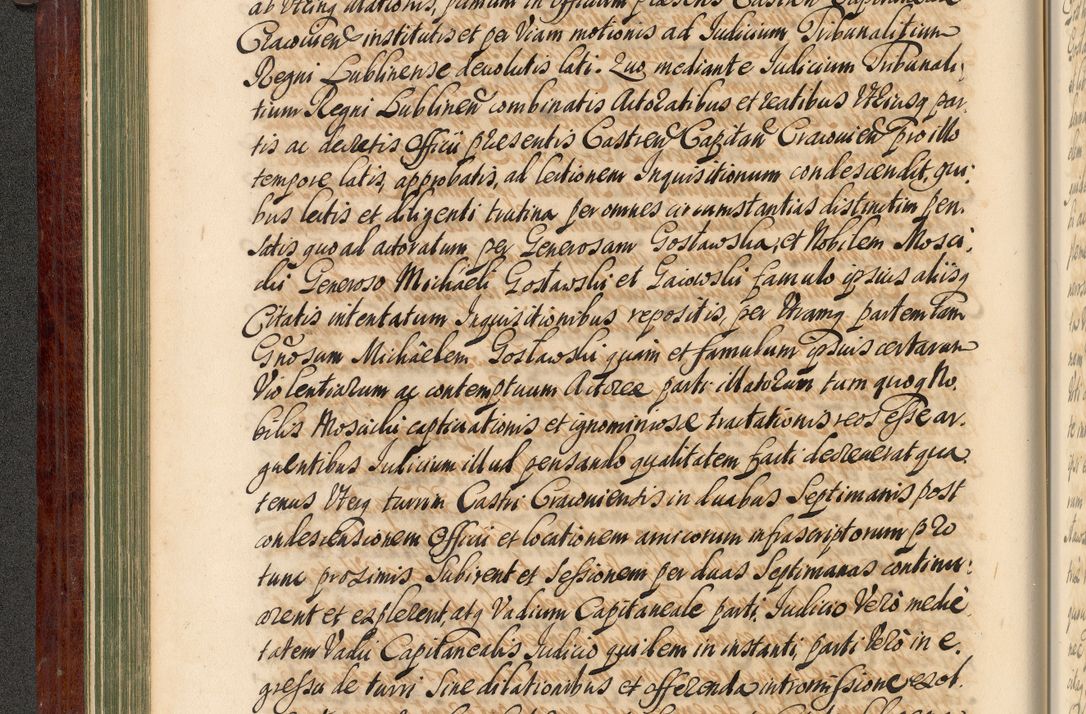 ab Vtriusq citationis, primum in Officium praesens Castren Capitaneale
Cracouien institutis et per Viam motionis ad Iudicium Tribunalitium
Regni Lublinense deuolutis lati. Quo mediante Iudicium Tribunali:
tium Regni Lublinen combinatis Actoratibus et reatibus Vtriusq par
tis ac decretis Officii praesentis Castren Capitan Cracouien pro illo
tempore latis, approbatis, ad lectionem Inquisitionum condescendit, qui:
bus lectis et diligenti trutina per omnes circumstantias distinctim pen,
satis quo ad actoratum per Generosam Gosławska, et Nobilem Mosci,
cki Generoso Michaeli Gosławski et Gacowski famulo ipsius aliisq
Citatis intentatum Inquisitionibus repositis, per Vtramq partem tam
Gnosam Michäelem Gosławski quam et famulum ipsius certarum
Violentiarum ac contemptuum Actoreae parti illatorum tum quoq No,
bilis Moscicki captiuationis et ignominiosae tractationis reos esse ar,
guentibus Iudicium illud pensando qualitatem facti decreuerat qua
tenus Vterq turrim Castri Cracouiensis in duabus Septimanis post
condescensionem Officii et locationem amicorum infrascriptorum pro
tunc proximis Subirent et Sessionem per duas Septimanas continu:
arent et explerent, atq Vadium Capitaneale parti, Iudicio Verò medie
tatem Vadii Capitanealis Iudicio quidem in instanti, parti Verò in e,
gressu de turri Sine dilationibus et offerenda intromissione exol.